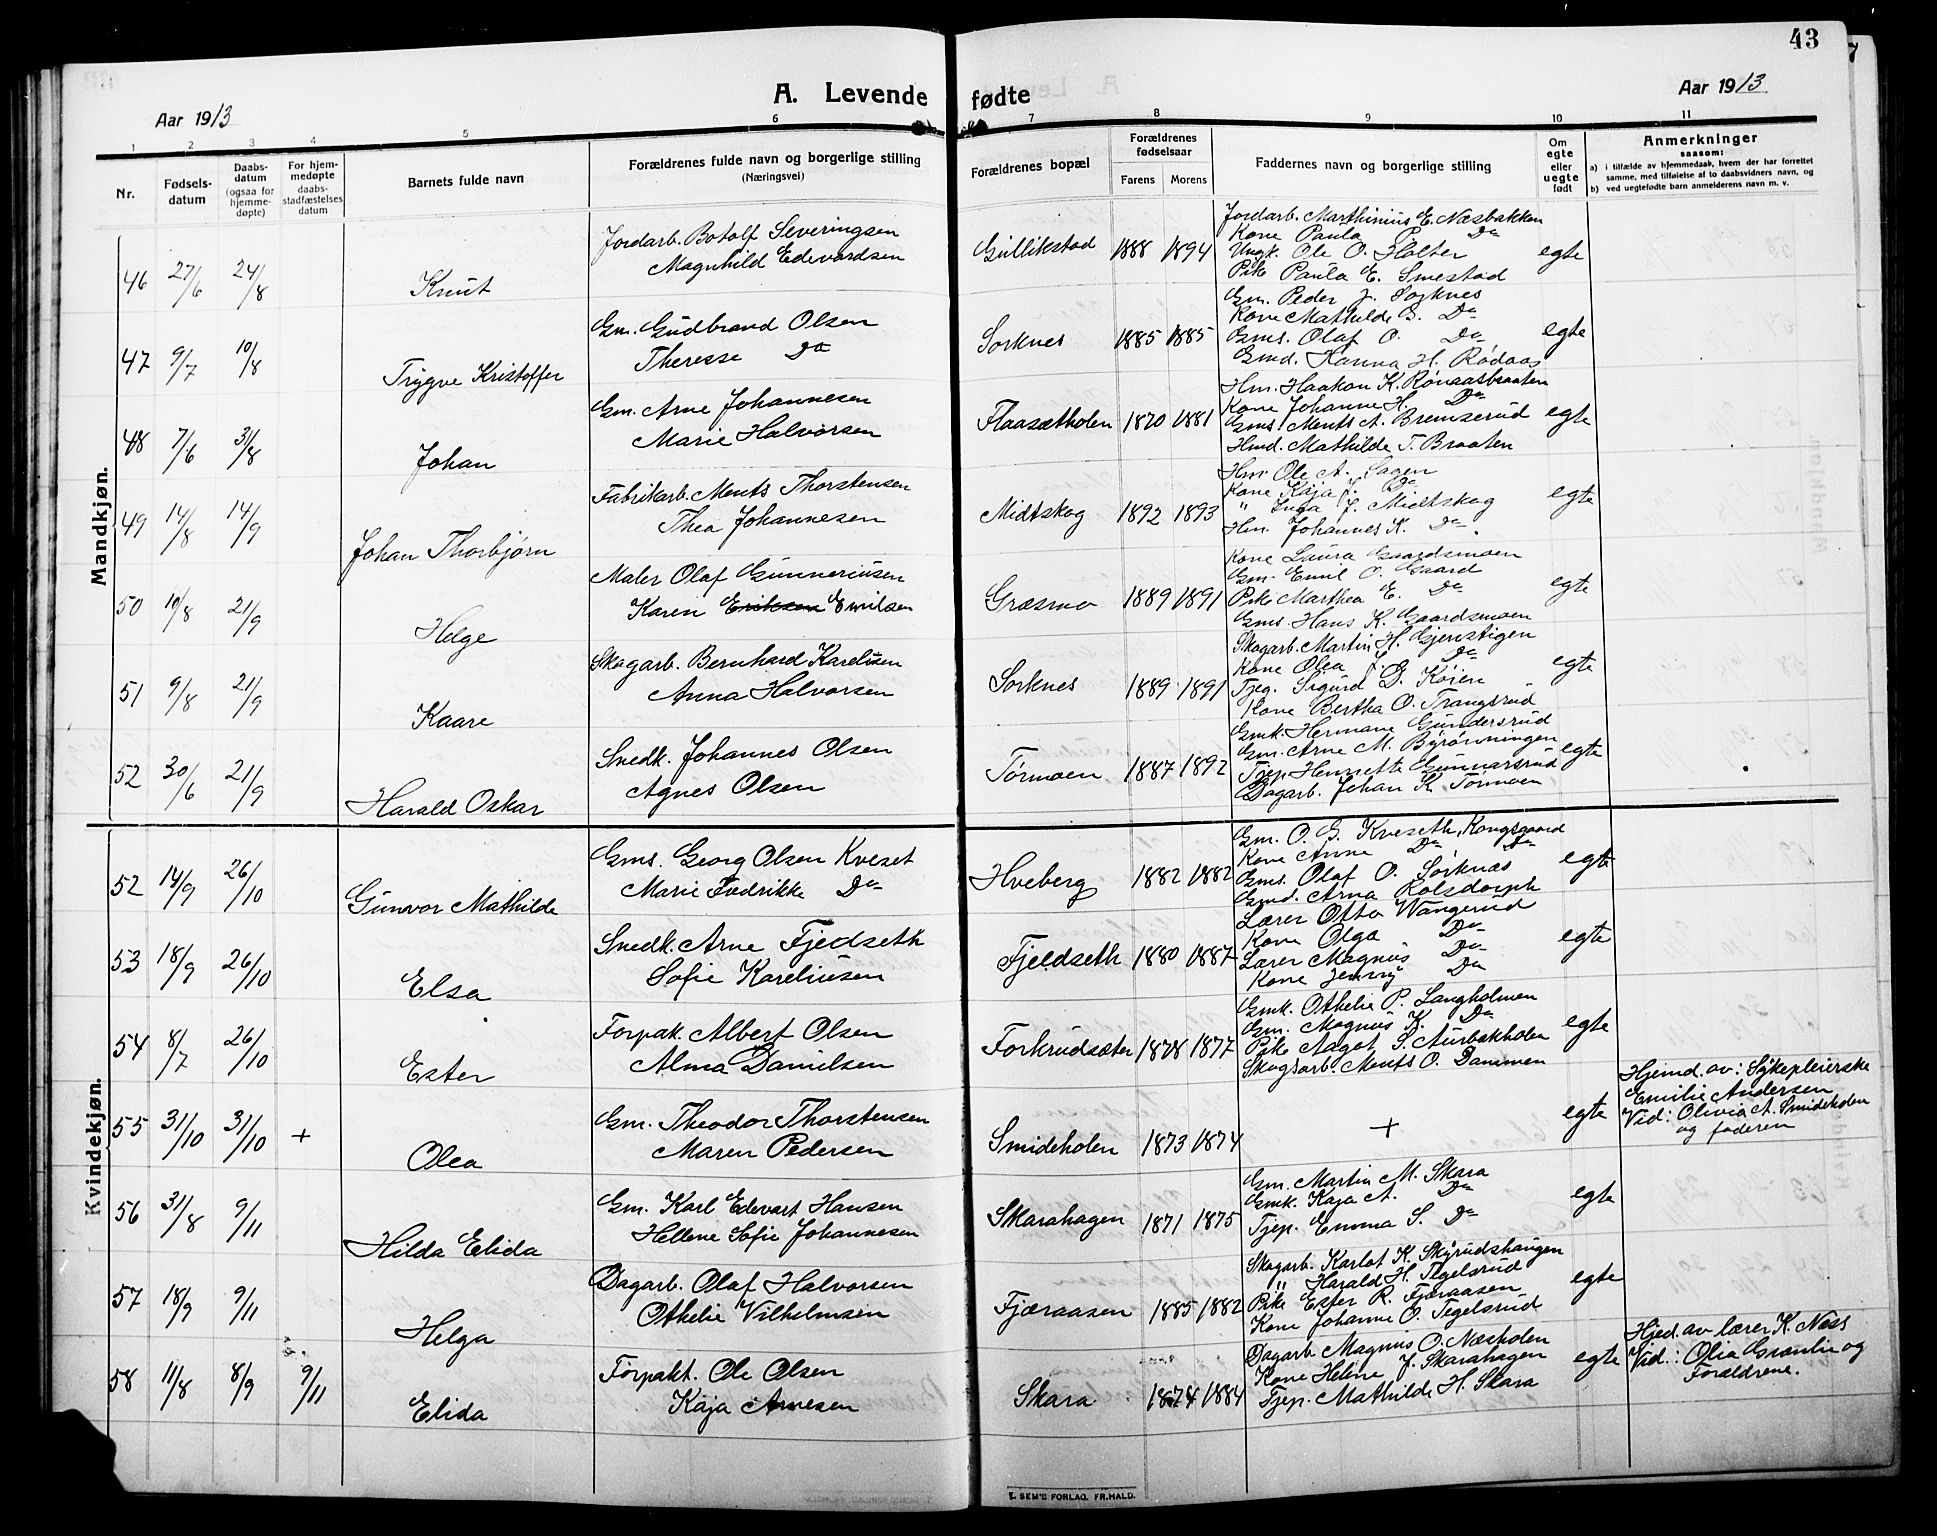 43
A. Levende fødte
Aar 1913
Aar 1913
1 2 3 4 5 6 7 8 9 10 11
Nr.
Fødsels-
datum
Daabs-
datum
(ogsaa for
hjemme-
døpte)
For hjem-
medøpte
daabs-
stadfæstelses
datum
Barnets fulde navn
Forældrenes fulde navn og borgerlige stilling
(Næringsvei)
Forældrenes bopæl
Forældrenes
fødselsaar
Farens Morens
Faddernes navn og borgerlige stilling
Om
egte
eller
uegte
født
Anmerkninger
saasom:
a) i tilfælde av hjemmedaab, hvem der har forrettet
samme, med tilføielse af to daabsvidners navn, og
b) ved uegtefødte barn anmelderens navn m. v.
Mandkjøn.
46 27/6 24/8 Knut
Jordarb. Botolf Severingsen
Magnhild Edevardsen
Gullikstad 1888 1894
Jordarb. Marthinius E. Næsbakken
Kone Paula P. Do
Ungk. Ole O. Holter
Pike Paula E. Smestad
egte
47 9/7 10/8 Trygve Kristoffer
Gm. Gudbrand Olsen
Therese Do
Sorknes 1885 1885
Gm. Peder J. Sorknes
Kone Mathilde G. Do
Gms. Olaf O. Do
Gmd. Hanna H. Rødaas
egte
48 7/6 31/8 Johan
Gm. Arne Johannesen
Marie Halvorsen
Flaasætholen 1870 1881
Hm. Haakon K. Rønaasbraaten
Kone Johanne H. Do
Gms. Ments A. Bremserud
Hmd. Mathilde T. Braaten
egte
49 14/8 14/9 Johan Thorbjørn
Fabrikarb. Ments Thorstensen
Thea Johannesen
Midtskog 1892 1893
Hm. Ole A. Sagen
Kone Kaja J. Do
" Inga J. Midtskog
Hm. Johannes K. Do
egte
50 10/8 21/9 Helge
Maler Olaf Gunneriusen
Karen Eriksen Emilsen
Græsmo 1889 1891
Kone Laura Gaardsmoen
Gm. Emil O. Gaard
Pike Marthea E. Do
Gms. Hans K. Gaardsmoen
egte
51 9/8 21/9 Kaare
Skogarb. Bernhard Kareliusen
Anna Halvorsen
Sorknes 1889 1891
Skogarb. Martin H. Gjenstigen
Kone Olea J. Do
Tjeg. Sigurd G. Køien
Kone Bertha O. Trangsrud
egte
52 30/6 21/9 Harald Oskar
Snedk. Johannes Olsen
Agnes Olsen
Tørmoen 1887 1892
Gmk. Hermane Gundersrud
Gm. Arne M. Byrønningen
Tjep. Hennette Gunnarsrud
Dagarb. Johan K. Tørmoen
egte
Kvindekjøn.
52 14/9 26/10 Gunvor Mathilde
Gms. Georg Olsen Kveset
Marie Fredrikke Do
Hveberg 1882 1882
Gm. O. G. Kveseth, Kongsgaard
Kone Anne Do Do
Gms. Olaf O. Sørknæs
Gmd. Arna Rolsdorph
egte
53 18/9 26/10 Elsa
Snedk. Arne Fjedseth
Sofie Kareliusen
Fjeldseth 1880 1887
Lærer Otto Wangerud
Kone Olga Do
Lærer Magnus Do
Kone Jenny Do
egte
54 8/7 26/10 Ester
Forpak. Albert Olsen
Alma Danielsen
Forkrudsæter 1878 1877
Gmk. Othelie P. Langholmen
Gm. Magnus K. Do
Pike Aagot S. Aurbakholen
Skogsarb. Ments O. Dammen
egte
55 31/10 31/10 + Olea
Gm. Theodor Thorstensen
Maren Pedersen
Smideholen 1873 1874
+
egte
Hjemd. av: Sykepleierske
Emilie Andersen
Vid: Olivia A. Smideholen
og faderen
56 31/8 9/11 Hilda Elida
Gm. Karl Edevart Hansen
Hellene Sofie Johannesen
Skarahagen 1871 1875
Gm. Martin M. Skara
Gmk. Kaja A. Do
Tjep. Emma S. Do
egte
57 18/9 9/11 Helga
Dagarb. Olaf Halvorsen
Othelie Vilhelmsen
Fjæraasen 1885 1882
Skogarb. Karlot K. Skyrudshaugen
" Harald H. Tegelsrud
Pike Ester R. Fjæraasen
Kone Johanne O. Tegelsrud
egte
58 11/8 8/9 9/11 Elida
Forpakt. Ole Olsen
Kaja Arnesen
Skara 1874 1884
Dagarb. Magnus O. Næsholen
Kone Helene J. Skarahagen
Tjep. Mathilde H. Skara
egte
Hjed. av lærer K. Næss
Vid.: Olea Grønlie og
Forældrene.
E. SEM'S FORLAG, FR.HALD.